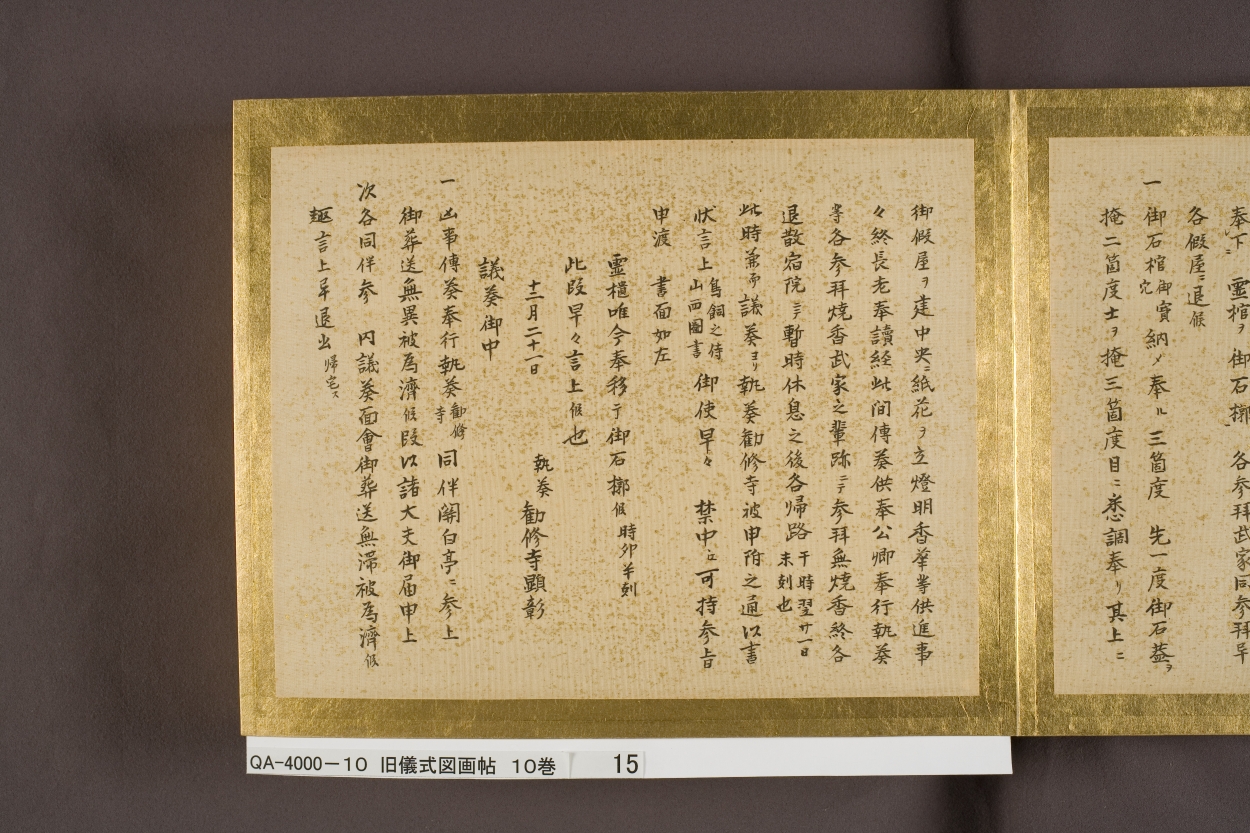 奉下 霊棺ヲ御石槨 各参拝武家同参拝早
各假屋ニ退候
一 御石棺御實穴納メ奉ル 三箇度 先一度御石蓋ヲ
掩二箇度士ヲ掩三箇度目ニ悉調奉リ其上ニ
御假屋ヲ建中央ニ紙花ヲ立燈明香華等供進事
々終長老奉讀経此間傳奏供奉公卿奉行執奏
等各参拝焼香武家之輩跡ニテ参拝無焼香終各
退散宿院ニテ暫時休息之後各帰路于時翌廿一日未刻也
此時兼而議奏ヨリ執奏勧修寺被申附之通以書
状言上鳥飼之侍山西圖書御使早々 禁中江可持参旨
申渡 書面如左
霊櫃唯今奉移于御石槨候時卯半刻
此段早々言上候也
十二月二十一日 執奏 勧修寺顕彰
議奏御中
一 凶事傳奏奉行執奏勧修寺同伴関白亭ニ参上
御葬送無異被為済候段以諸大夫御届申上
次各同伴参 内議奏面會御葬送無滞被為濟候
趣言上早退出帰宅ス
QA-4000-10 旧儀式図画帖 10巻 15